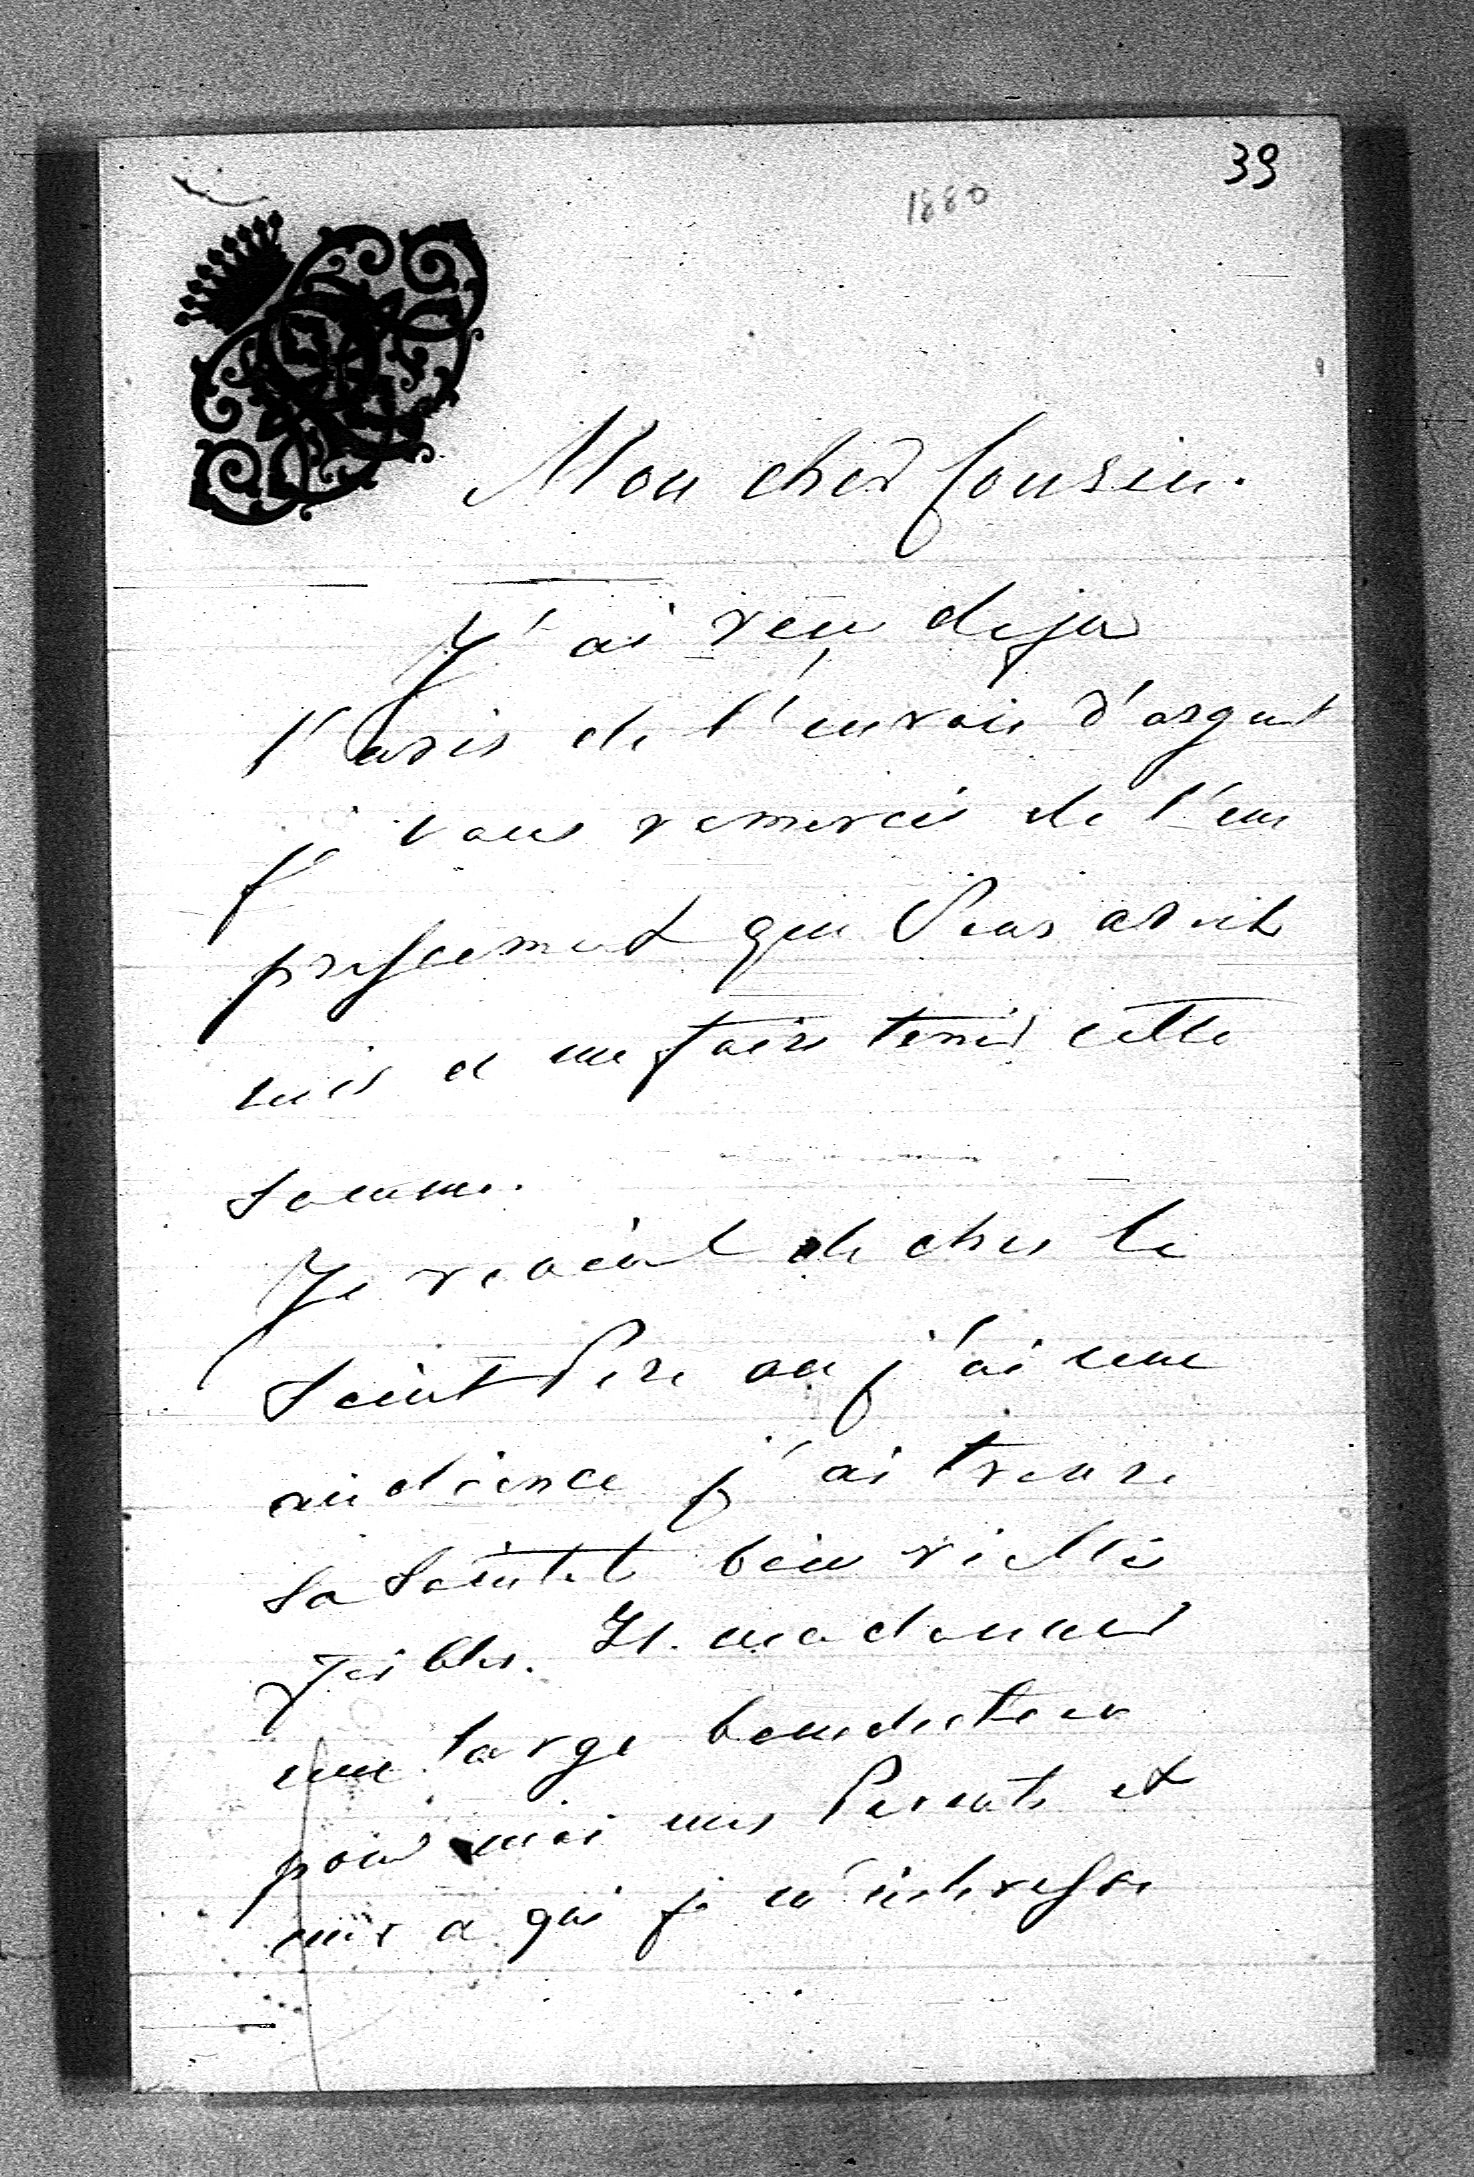 39
1880
Mon cher Cousin.
J'ai reçu deja
l'avis de l'envoie d'argent
je vous remercie de l'em
pressement que Vous avez
mis a me faire tenir cette
somme.
Je revient de chez le
Saint Pere ou j'ai eue
audience j'ai trouve
sa Saintete bien vielle
faible. Il. ma donner
une large benediction
pour moi mes Parents et
ceux a qui je m'interesse